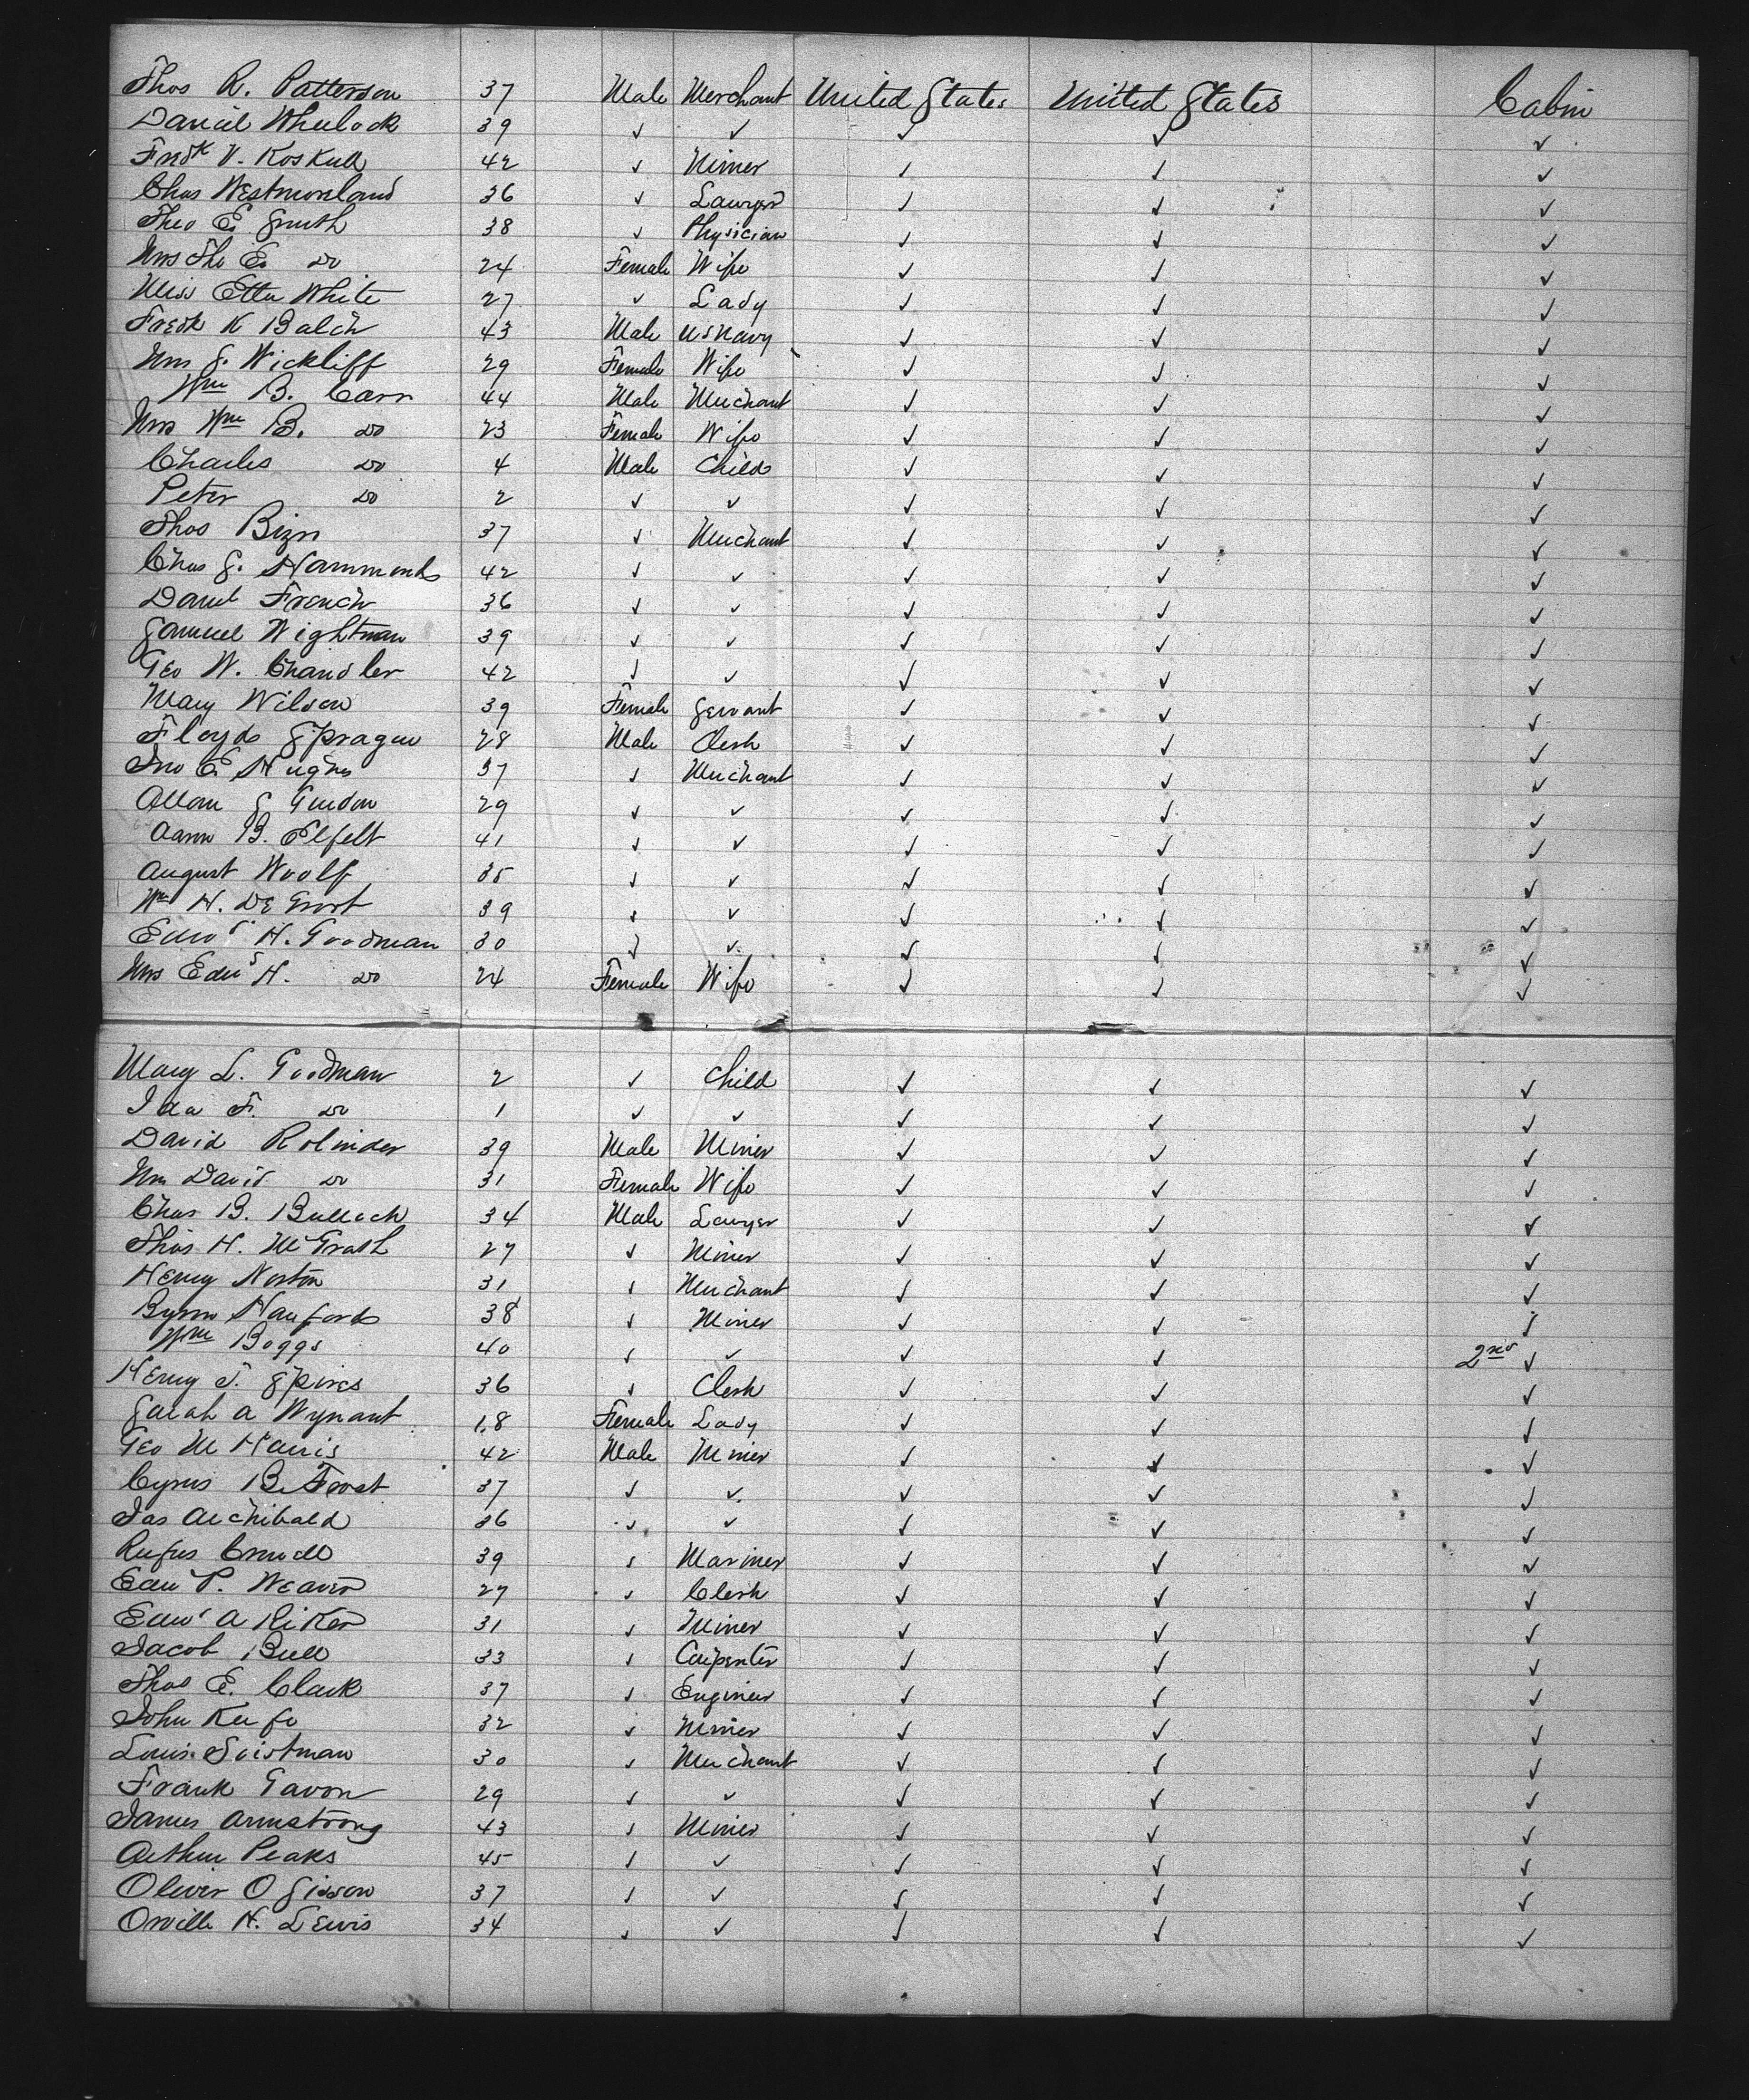 Thos R. Patterson 37 Male Merchant United States United States Cabin
Daniel Wheelock 39 ✓ ✓ ✓ ✓ ✓
Fredk V. Koskull 42 ✓ Miner ✓ ✓ ✓
Chas Westmoreland 36 ✓ Lawyer ✓ ✓ ✓
Theo E. Smith 38 ✓ Physician ✓ ✓ ✓
Mrs Tho E. Do 24 Female Wife ✓ ✓ ✓
Miss Etta White 27 ✓ Lady ✓ ✓ ✓
Fredk K Balch 43 Male US Navy ✓ ✓ ✓
Mrs S. Wickliff 29 Female Wife ✓ ✓ ✓
Wm B. Carr 44 Male Merchant ✓ ✓ ✓
Mrs Wm B. Do 23 Female Wife ✓ ✓ ✓
Charles Do 4 Male Child ✓ ✓ ✓
Peter Do 2 ✓ ✓ ✓ ✓ ✓
Thos 37 ✓ Merchant ✓ ✓ ✓
Chas S. Hammonds 42 ✓ ✓ ✓ ✓ ✓
Danl French 36 ✓ ✓ ✓ ✓ ✓
Samuel Wightman 39 ✓ ✓ ✓ ✓ ✓
Geo W. Chandler 42 ✓ ✓ ✓ ✓ ✓
Mary Wilson 39 Female Servant ✓ ✓ ✓
Floyd Sprague 28 Male Clerk ✓ ✓ ✓
Jno E. Hughes 37 ✓ Merchant ✓ ✓ ✓
Allan S 29 ✓ ✓ ✓ ✓ ✓
Aaron B. Elfelt 41 ✓ ✓ ✓ ✓ ✓
August Woolf 35 ✓ ✓ ✓ ✓ ✓
Wm H. De Groot 39 ✓ ✓ ✓ ✓ ✓
Edwd H. Goodman 30 ✓ ✓ ✓ ✓ ✓
Mrs Edwd H. Do 24 Female Wife ✓ ✓ ✓
Mary L. Goodman 2 ✓ Child ✓ ✓ ✓
Ida F. Do 1 ✓ ✓ ✓ ✓ ✓
David 39 Male Miner ✓ ✓ ✓
Mrs David Do 31 Female Wife ✓ ✓ ✓
Chas B. Bullock 34 Male Lawyer ✓ ✓ ✓
Thos H. McGrath 27 ✓ Miner ✓ ✓ ✓
Henry Norton 31 ✓ Merchant ✓ ✓ ✓
Byron Hanford 38 ✓ Miner ✓ ✓ ✓
Wm Boggs 40 ✓ ✓ ✓ ✓ 2nd ✓
Henry J. Spires 36 ✓ Clerk ✓ ✓ ✓
Sarah A Wynant 18 Female Lady ✓ ✓ ✓
Geo M Harris 42 Male Miner ✓ ✓ ✓
Cyrus B. Frost 37 ✓ ✓ ✓ ✓ ✓
Jas Archibald 36 ✓ ✓ ✓ ✓ ✓
Rufus 39 ✓ Mariner ✓ ✓ ✓
Edw P. Weaver 27 ✓ Clerk ✓ ✓ ✓
Edwd A Riker 31 ✓ Miner ✓ ✓ ✓
Jacob Bull 33 ✓ Carpenter ✓ ✓ ✓
Thos E. Clark 37 ✓ Engineer ✓ ✓ ✓
John Keefe 32 ✓ Miner ✓ ✓ ✓
Louis 30 ✓ Merchant ✓ ✓ ✓
Frank Gavon 29 ✓ ✓ ✓ ✓ ✓
James Armstrong 43 ✓ Miner ✓ ✓ ✓
Arthur Peaks 45 ✓ ✓ ✓ ✓ ✓
Oliver O Sisson 37 ✓ ✓ ✓ ✓ ✓
Orville H. Lewis 34 ✓ ✓ ✓ ✓ ✓